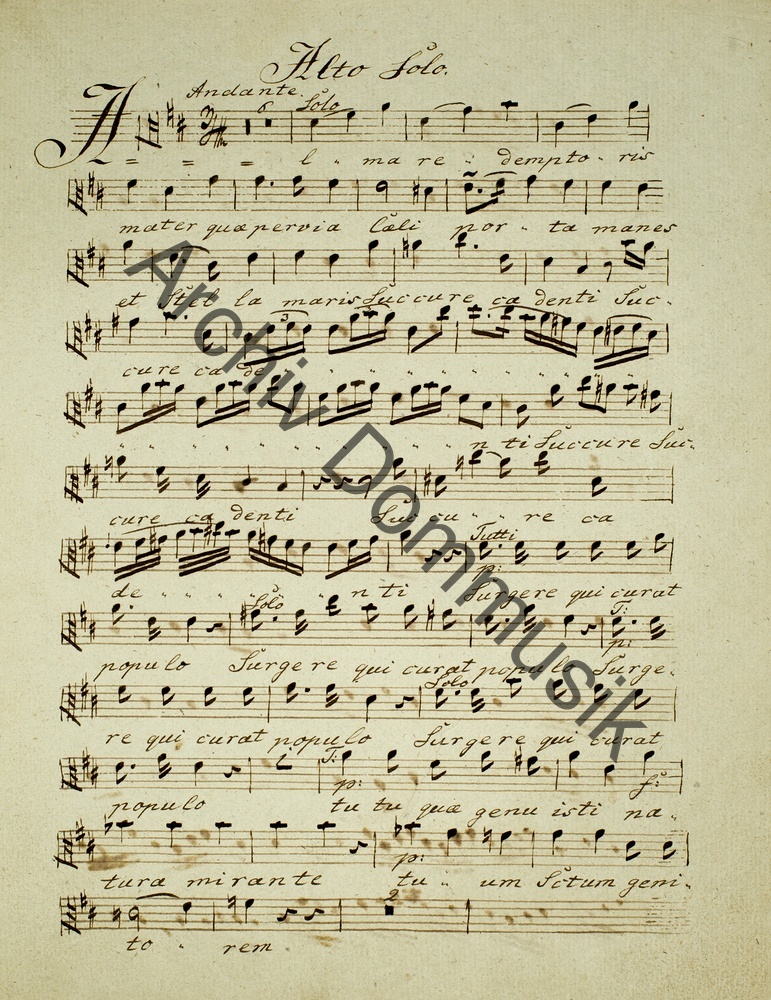 Alto Solo.
Andante.
6 Solo
A l ma re dempto ris
mater quæ pervia Cæli por ta manes
et Stel la maris Succure ca denti Suc-
3
cure ca de
n ti Succure Suc-
cure ca denti Suc cu re ca
Tutti
p:
de n ti Surgere qui curat
Solo
T:
p:
populo Surgere qui curat populo Surge-
Solo
re qui curat populo Surgere qui curat
T:
p:
f:
populo tu tu quæ genu isti na-
p:
tura mirante tu um Sctum geni-
2
to rem
Archiv Dommusik